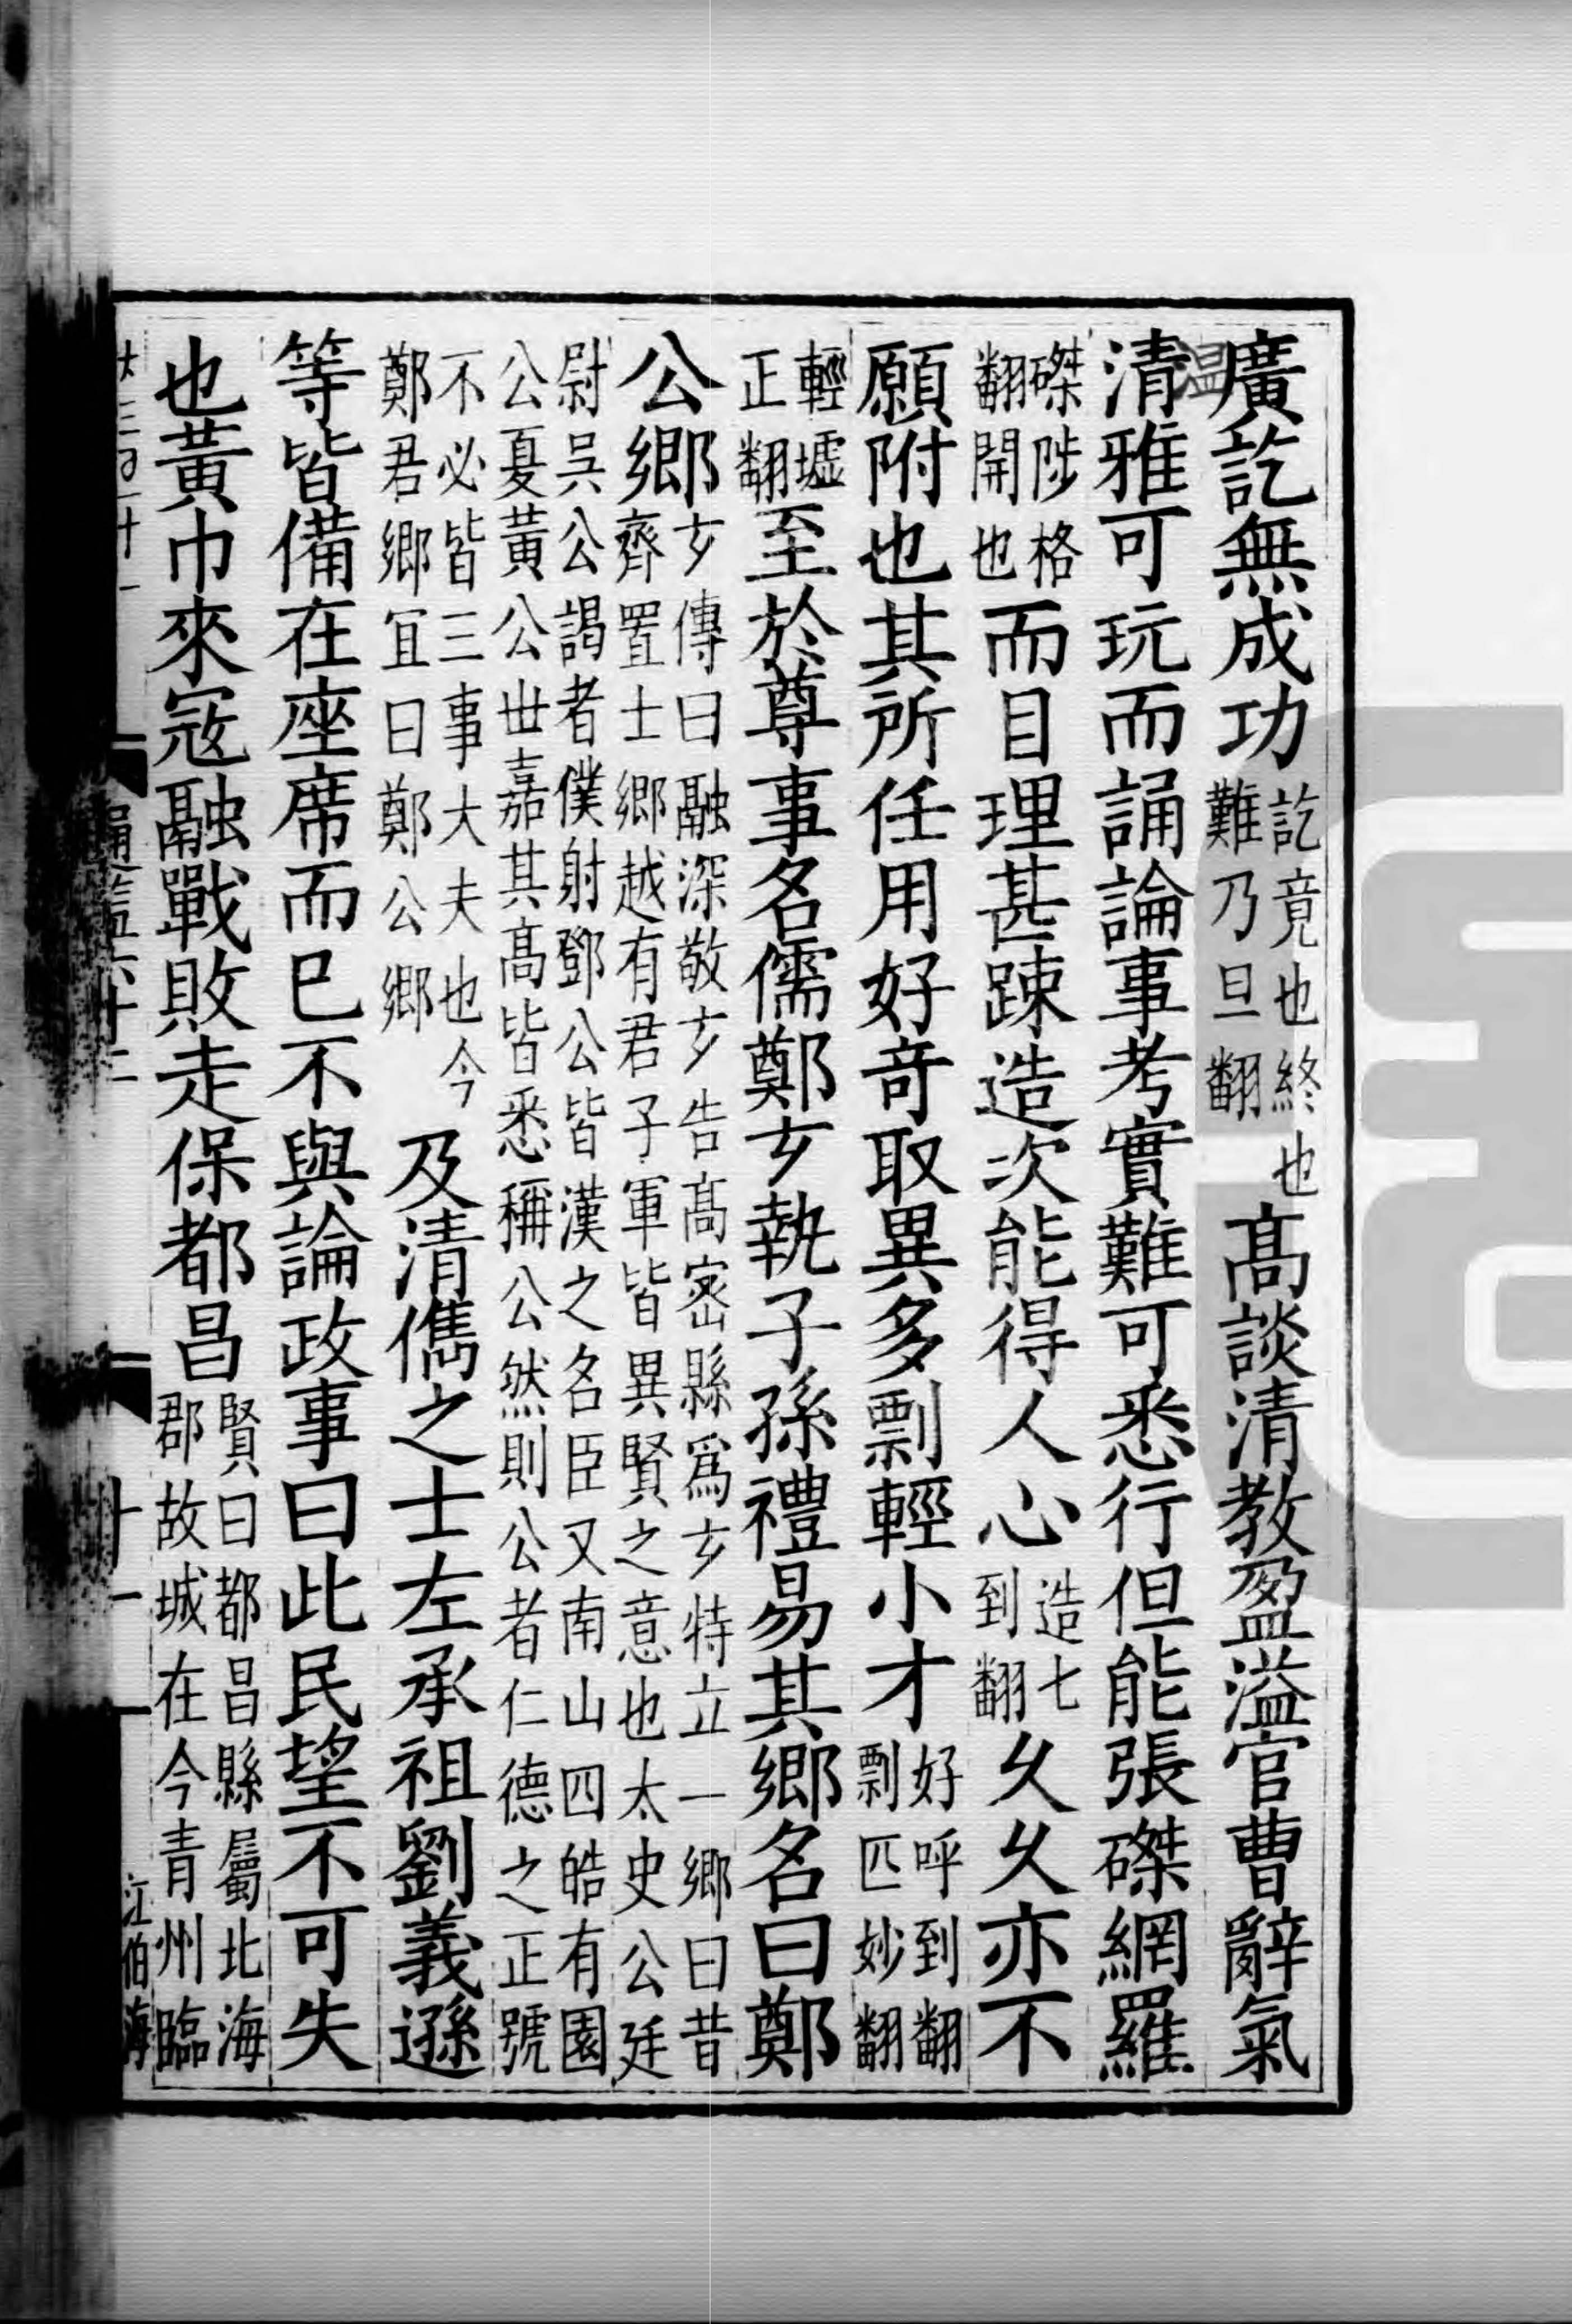 廣訖無成功訖竟也終也難乃旦翻高談清教盈溢官曹辭氣
溫
清雅可玩而誦論事考實難可悉行但能張磔網羅
磔陟格翻開也而目理甚踈造次能得人心造七到翻乆乆亦不
願附也其所任用好奇取異多剽輕小才好呼到翻剽匹妙翻
輕墟正翻至於尊事名儒鄭𤣥執子孫禮易其鄉名曰鄭
公鄉𤣥傳曰融深敬𤣥告高密縣爲𤣥特立一鄉曰昔齊置士鄉越有君子軍皆異賢之意也太史公廷
尉吳公謁者僕射鄧公皆漢之名臣又南山四皓有園公夏黃公世嘉其高皆悉稱公然則公者仁德之正號
不必皆三事大夫也今鄭君鄉宜曰鄭公鄉及清儁之士左承祖劉義遜
等皆備在座席而已不與論政事曰此民望不可失
也黃巾來寇融戰敗走保都昌賢曰都昌縣屬北海郡故城在今青州臨
通鑑六十二
十一
江伯海